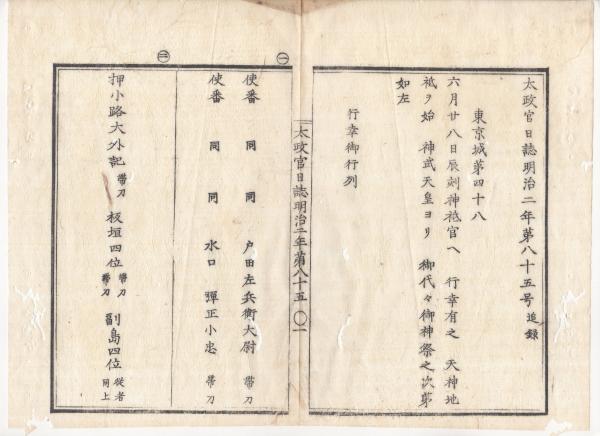 太政官日誌明治二年第八十五号追録
東京城第四十八
六月廿八日辰刻神祗官ヘ 行幸有之 天神地
祗ヲ始 神武天皇ヨリ 御代々御神祭之次第
如左
行幸御行列
太政官日誌明治二年第八十五 〇一
㊀
使番 同 同 戸田左兵衛大尉 帯刀
使番 同 同 水口 彈正小忠 帯刀
㊁
押小路大外記 帯刀 板垣四位 帯刀 帯刀 副島四位 従者 同上